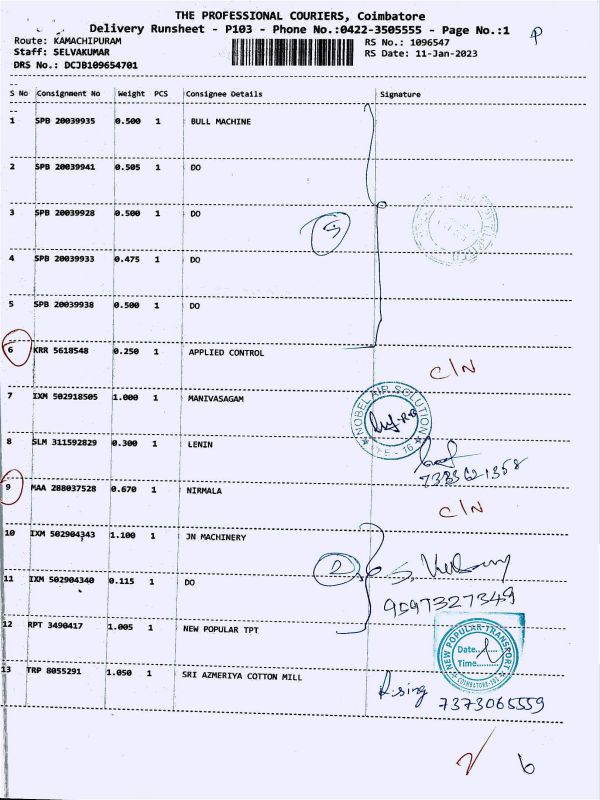 THE PROFESSIONAL COURIERS, Coimbatore
Delivery Runsheet - P103 - Phone No.:0422-3505555 - Page No.:1
P
Route: KAMACHIPURAM
RS No.: 1096547
Staff: SELVAKUMAR
RS Date: 11-Jan-2023
DRS No.: DCJB109654701
S No Consignment No Weight PCS Consignee Details Signature
1 SPB 20039935 0.500 1 BULL MACHINE
2 SPB 20039941 0.505 1 DO
3 SPB 20039928 0.500 1 DO
5
4 SPB 20039933 0.475 1 DO
5 SPB 20039938 0.500 1 DO
6 KRR 5618548 0.250 1 APPLIED CONTROL
C/N
7 IXM 502918505 1.000 1 MANIVASAGAM
NOBEL AIR SOLUTION
8 SLM 311592829 0.300 1 LENIN
9 MAA 288037528 0.670 1 NIRMALA
C/N
10 IXM 502904343 1.100 1 JN MACHINERY
11 IXM 502904340 0.115 1 DO
9597327349
12 RPT 3490417 1.005 1 NEW POPULAR TPT
NEW POPULAR TRANSPORT
Date......
Time.........
13 TRP 8055291 1.050 1 SRI AZMERIYA COTTON MILL
7373065559